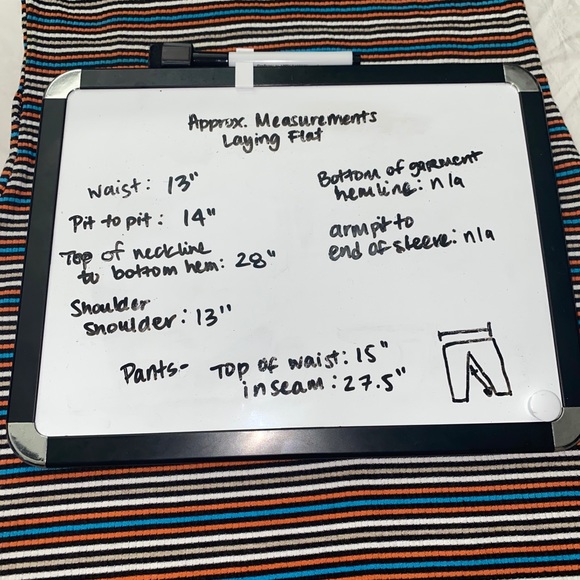 Approx. Measurements
Laying Flat
Waist: 13"
Pit to pit: 14"
Top of neckline
to bottom hem: 28"
Shoulder
shoulder: 13"
Bottom of garment
hemline: n/a
armpit to
end of sleeve: n/a
Pants- Top of waist: 15"
inseam: 27.5"